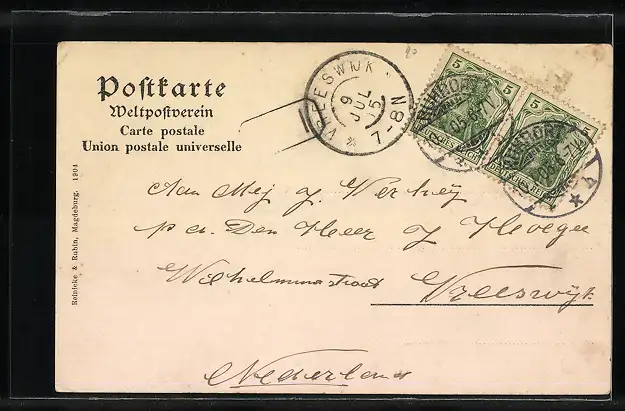 Postkarte
Weltpostverein
Carte postale
Union postale universelle
Reinicke & Rubin, Magdeburg. 1904
VREESWIJK
9 JUL 05
7-8N
5 5
5 5
RUHRORT
Aan Mej J. Verheij
p a. Den Heer J Hevegee
Wilhelminastraat Vreeswijk
Nederland